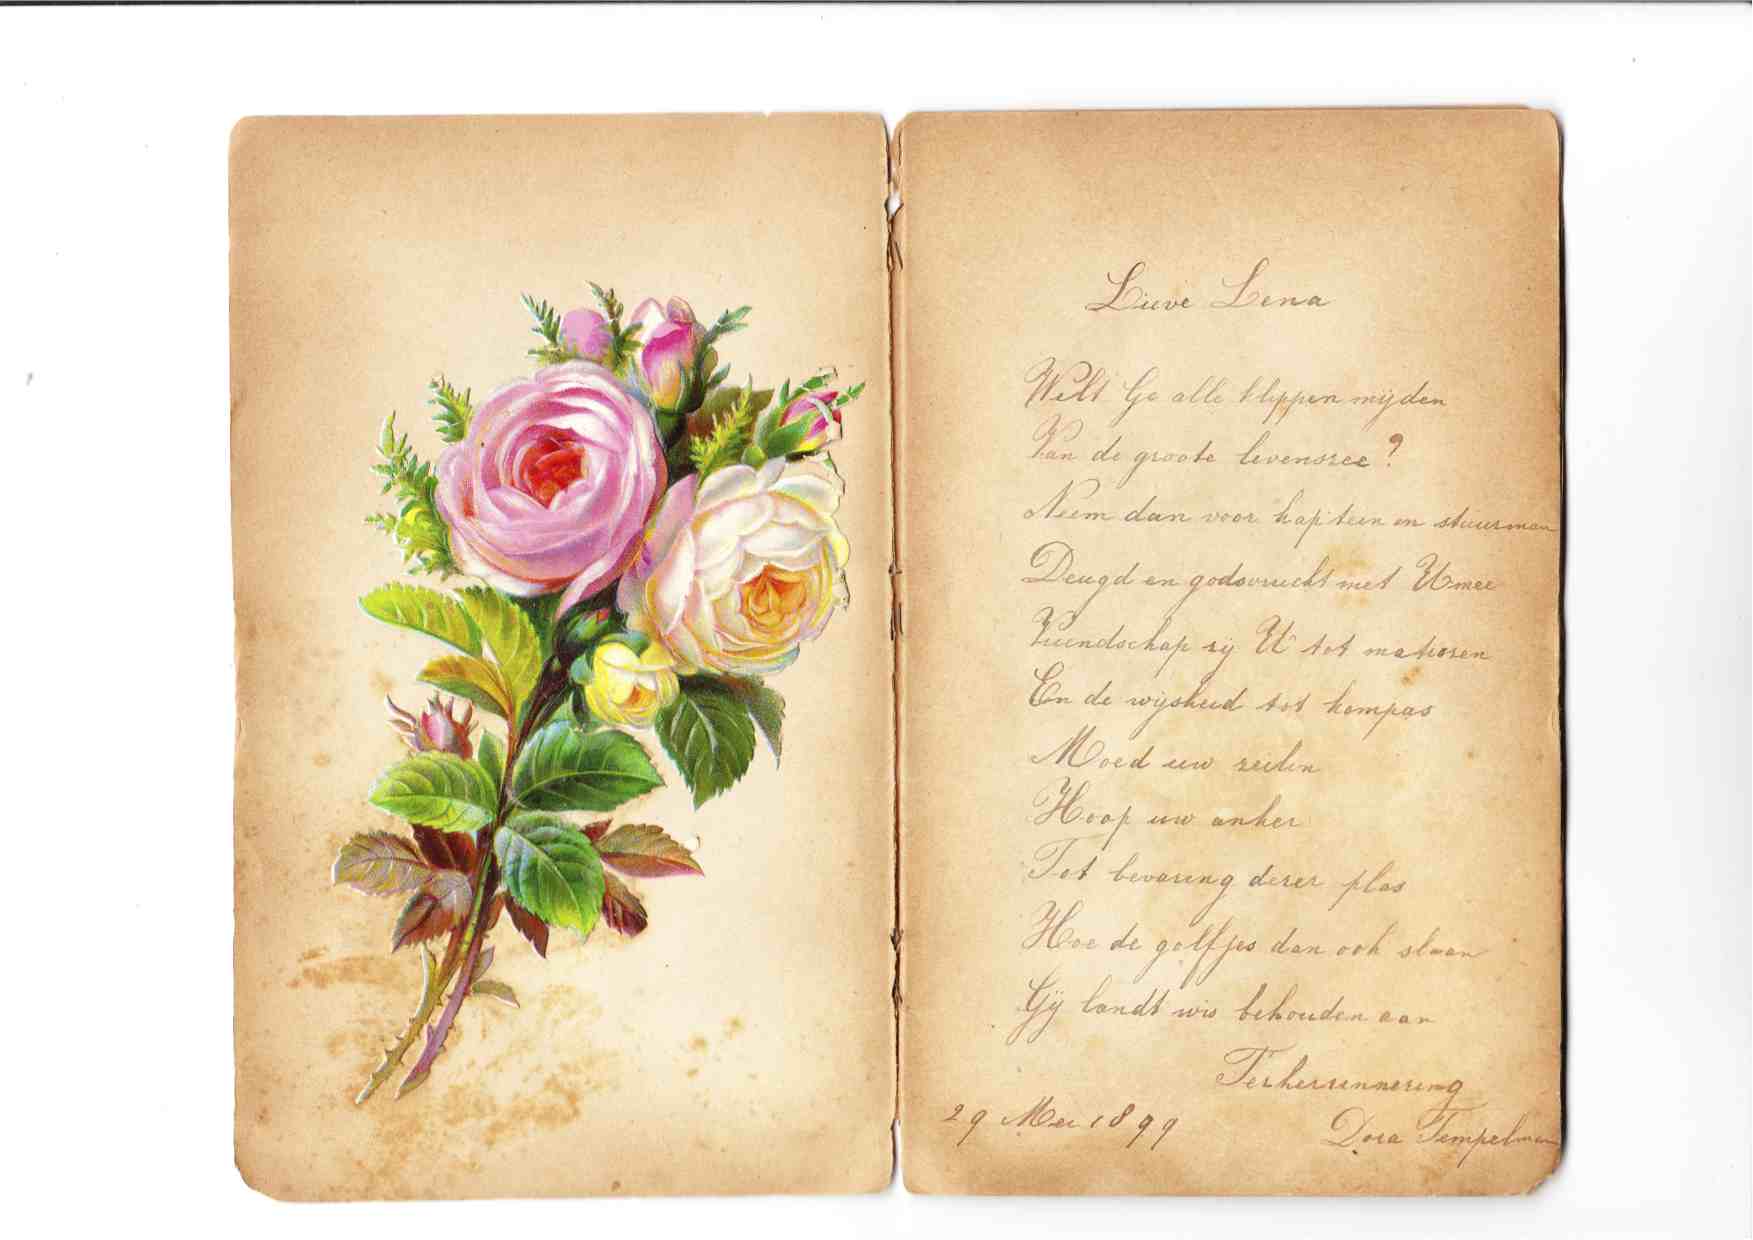 Lieve Lena
Wilt Ge alle klippen mijden
Van de groote levenszee?
Neem dan voor kapitein en stuurman
Deugd en godsvrucht met U mee
Vriendschap zij U tot matrozen
En de wijsheid tot kompas
Moed uw zeilen
Hoop uw anker
Tot bevaring dezer plas
Hoe de golfjes dan ook slaan
Gij landt wis behouden aan
Ter herinnering
29 Mei 1899 Dora Tempelman